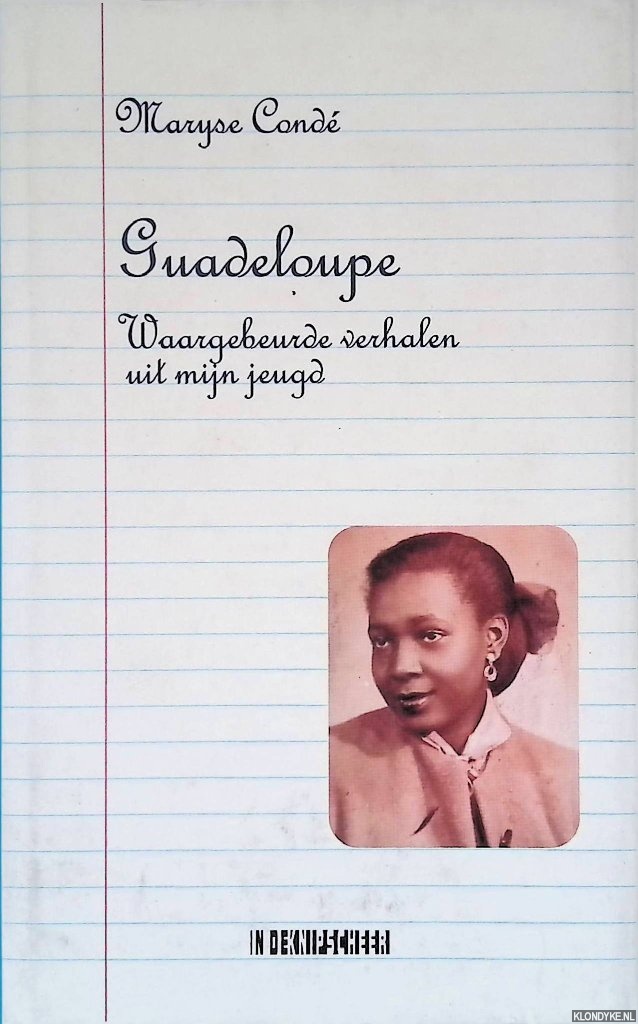 Maryse Condé
Guadeloupe
Waargebeurde verhalen
uit mijn jeugd
IN DE KNIPSCHEER
KLONDYKE.NL